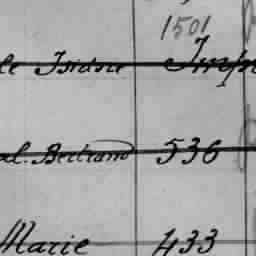 1501
le Isidore Imp
al. Bertrand 536
Marie 433